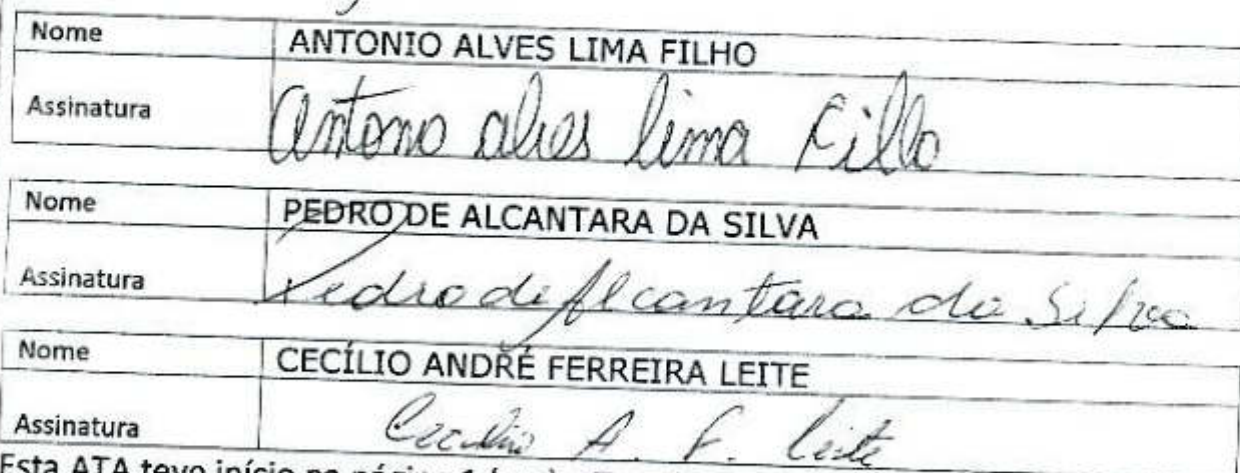 Nome ANTONIO ALVES LIMA FILHO
Assinatura Antonio alves lima Filho
Nome PEDRO DE ALCANTARA DA SILVA
Assinatura Pedro de Alcantara da Silva
Nome CECÍLIO ANDRÉ FERREIRA LEITE
Assinatura Cecílio A. F. Leite
Esta ATA teve início na página